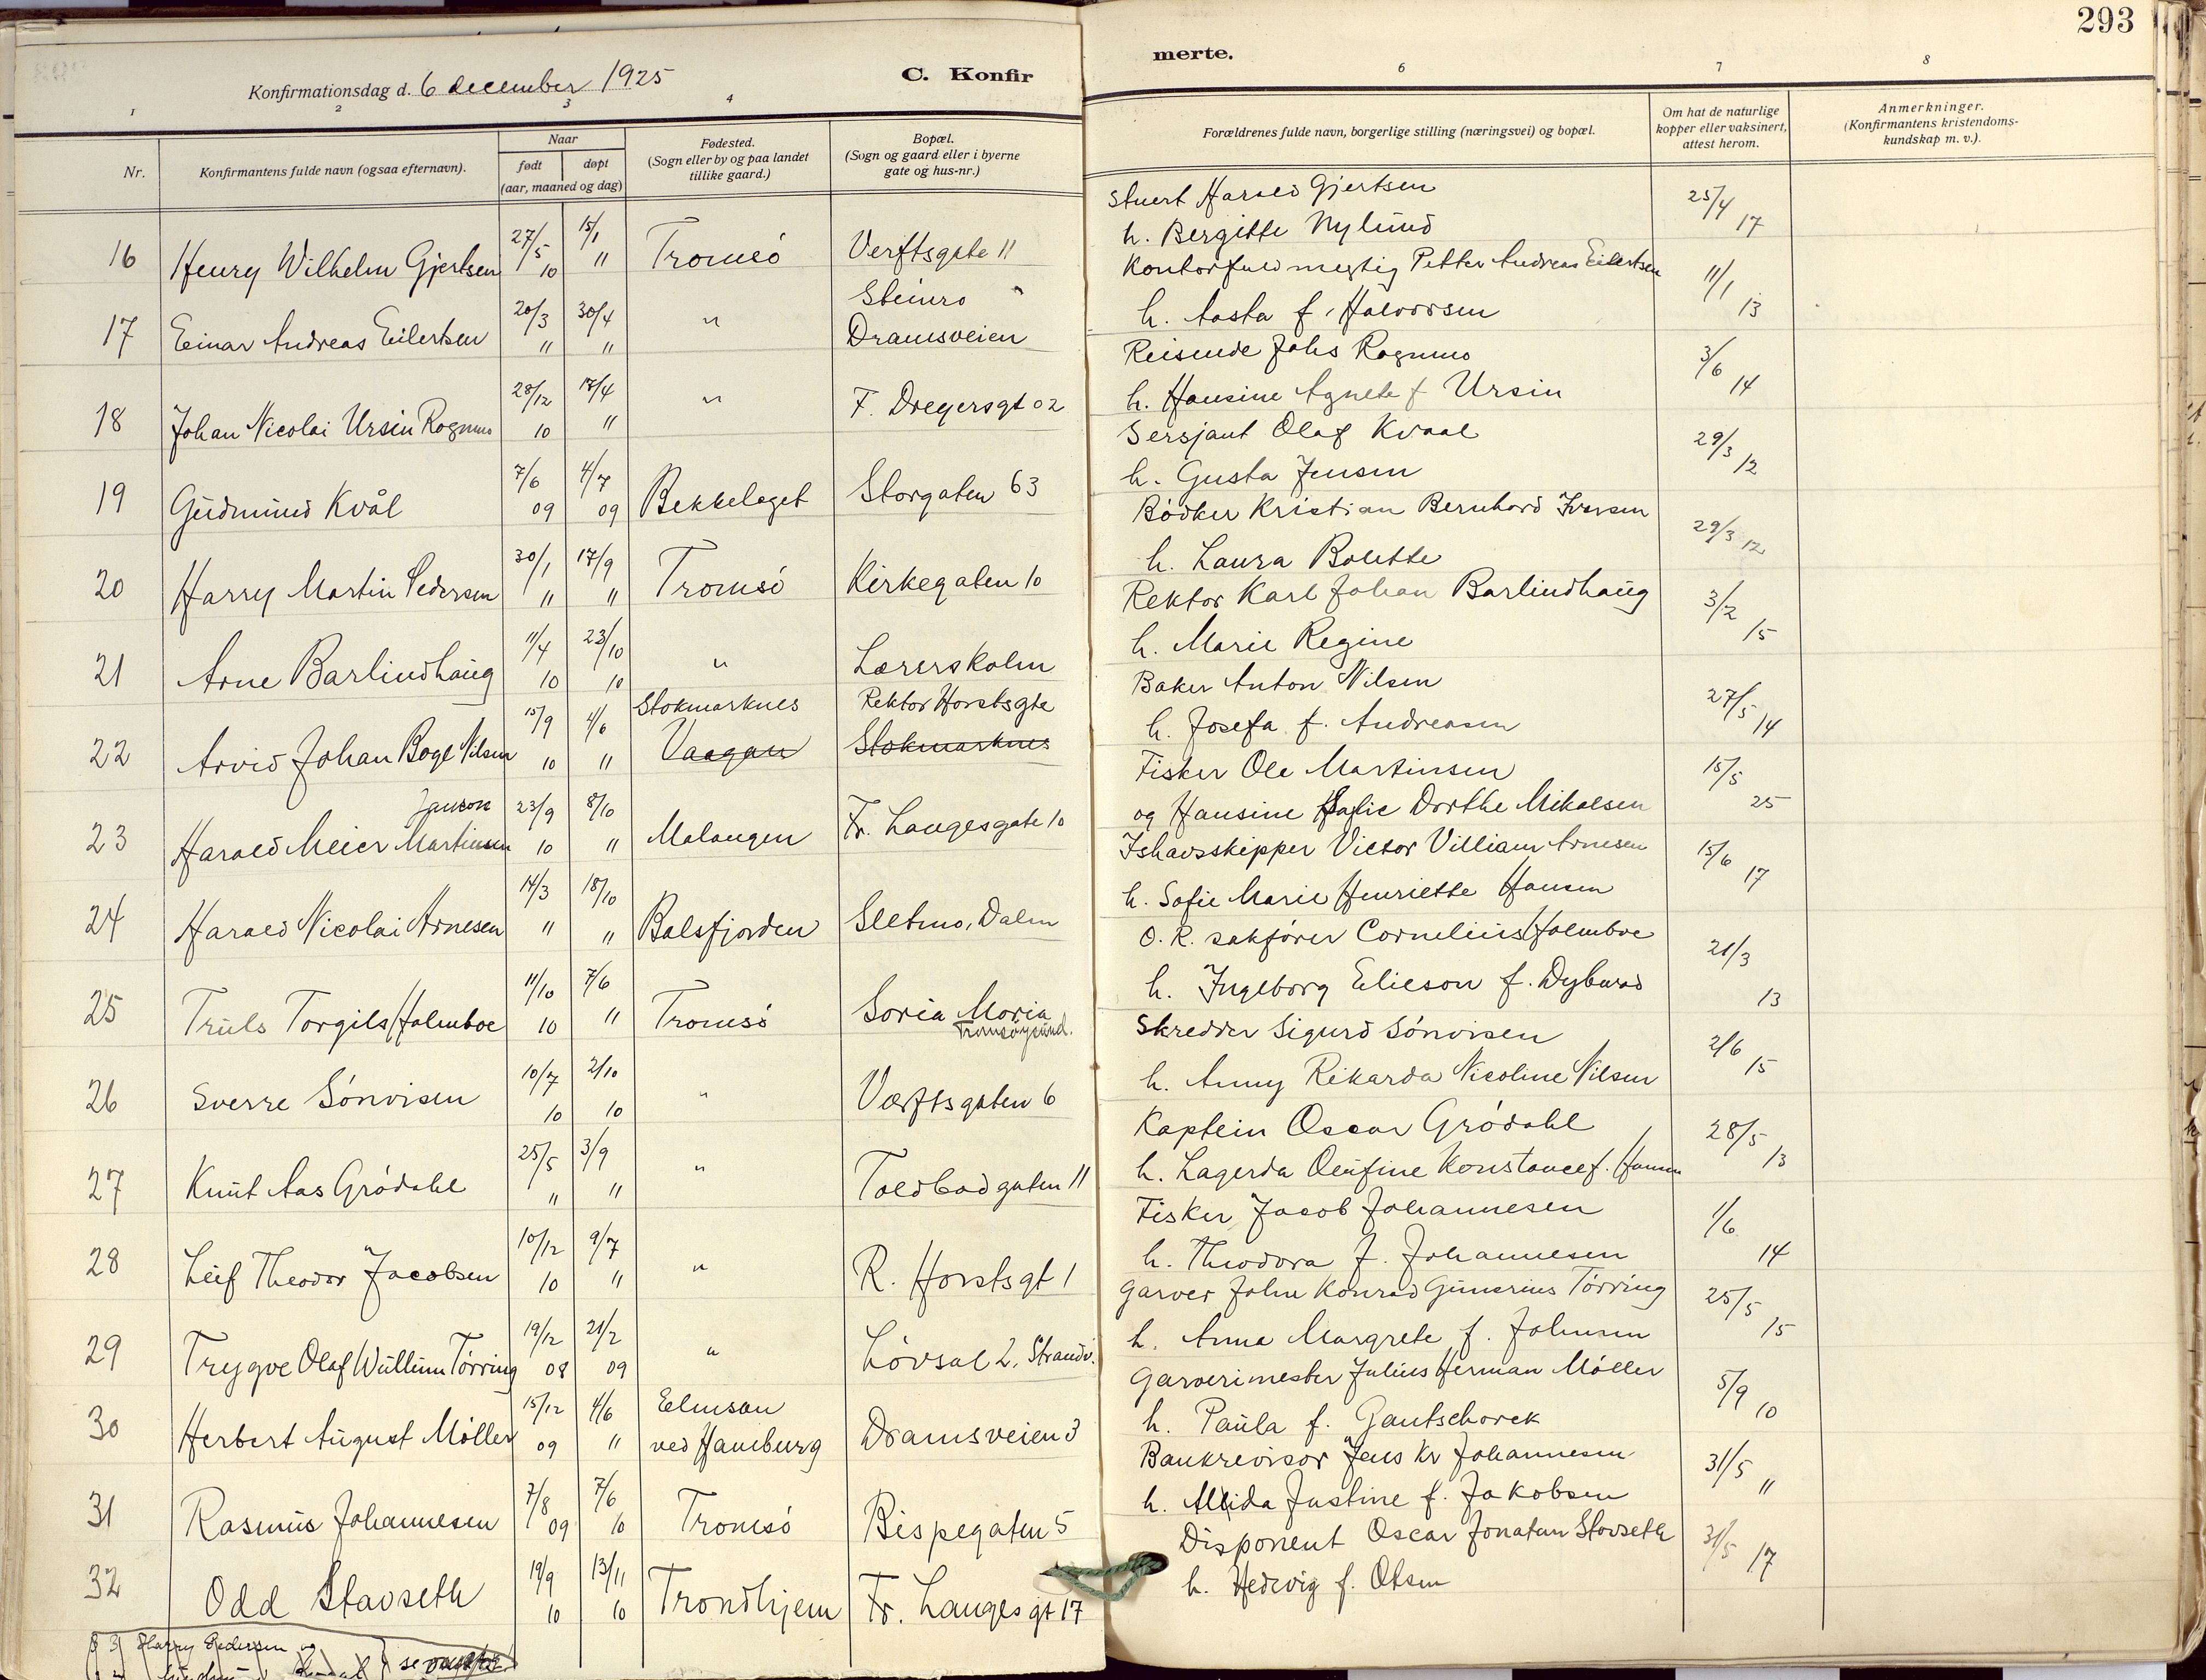 293
Konfirmationsdag d. 6 december 1925
C. Konfir
merte.
1 2 3 4 6 7 8
Nr.
Konfirmantens fulde navn (ogsaa efternavn).
Naar
født
døpt
(aar, maaned og dag)
Fødested.
(Sogn eller by og paa landet
tillike gaard.)
Bopæl.
(Sogn og gaard eller i byerne
gate og hus-nr.)
Forældrenes fulde navn, borgerlige stilling (næringsvei) og bopæl.
Om hat de naturlige
kopper eller vaksinert,
attest herom.
Anmerkninger.
(Konfirmantens kristendoms-
kundskap m. v.).
16 Henry Wilhelm Gjertsen 27/5 10 15/1 " Tromsö Verftsgate 11
Stuert Harald Gjertsen 25/4 17
h. Bergitte Nylund
17 Einar Andreas Eilertsen 20/3 " 30/4 " " Steinro Dramsveien
Kontorfuldmegtig Petter Andreas Eilertsen 11/1 13
h. Aasta f. Halvorsen
18 Johan Nicolai Ursin Rognmo 28/12 10 17/4 " " F. Dregersgt 02
Reisende Johs Rognmo 3/6 14
h. Hansine Agnete f Ursin
19 Gudmund Kvål 7/6 09 4/7 09 Bekkelaget Storgaten 63
Sersjant Olaf Kvaal 29/3 12
h. Gusta Jensen
20 Harry Martin Pedersen 30/1 " 17/9 " Tromsö Kirkegaten 10
Bödker Kristian Bernhard Iversen 29/3 12
h. Laura Bolette
21 Arne Barlindhaug 11/4 10 23/10 10 " Lærerskolen
Rektor Karl Johan Barlindhaug 3/2 15
h. Marie Regine
22 Arvid Johan Boge Nilsen 15/9 10 4/6 " Stokmarknes Vaagan Rektor Horstsgte Stokmarknes
Baker Anton Nilsen 27/5 14
h. Josefa f. Andreasen
23 Harald Meier Martinsen 23/9 10 8/10 " Malangen Fr. Langesgate 10
Fisker Ole Martinsen 15/5 25
og Hansine Dorthe Mikalsen
24 Harald Nicolai Arnesen 14/3 " 18/10 " Balsfjorden Sletmo, Dalen
Ishavsskipper Victor Villiam Arnesen 15/6 17
h. Sofie Marie Henriette Hansen
25 Truls Torgils Holmboe 11/10 10 7/6 " Tromsö Soria Moria Tromsöysund.
O. R. sakförer Cornelius Holmboe 21/3 13
h. Ingeborg Elieson f. Dybwad
26 Sverre Sönvisen 10/7 10 2/10 10 " Værftsgaten 6
Skredder Sigurd Sönvisen 2/6 15
h. Anny Rikarda Nicoline Nilsen
27 Knut Aas Grödahl 25/5 " 3/9 " " Toldbodgaten 11
Kaptein Oscar Grödahl 28/5 13
h. Lagerda Olufine Konstance f. Hansen
28 Leif Theodor Jacobsen 10/12 10 9/7 " " R. Horstsgt 1
Fisker Jacob Johannesen 1/6 14
h. Theodora J. Johannesen
29 Trygve Olaf Wullum Törring 19/12 08 21/2 09 " Lövsal 2. Strandv.
Garver John Konrad Gunerius Törring 25/5 15
h. Anna Margrete f. Johnsen
30 Herbert August Möller 15/12 09 4/6 " Elmson ved Hamburg Dramsveien 3
Garverimester Julius Herman Möller 5/9 10
h. Paula f. Gantschorek
31 Rasmus Johannesen 7/8 09 7/6 10 Tromsö Bispegaten 5
Bankrevisor Jens Kr Johannesen 31/5 "
h. Alida Justine f. Jakobsen
32 Odd Stavseth 19/9 10 13/11 10 Trondhjem Fr. Langesgt 17
Disponent Oscar Jonatan Stavseth 31/5 17
h. Hedevig f. Olsen
Harry Pedersen og